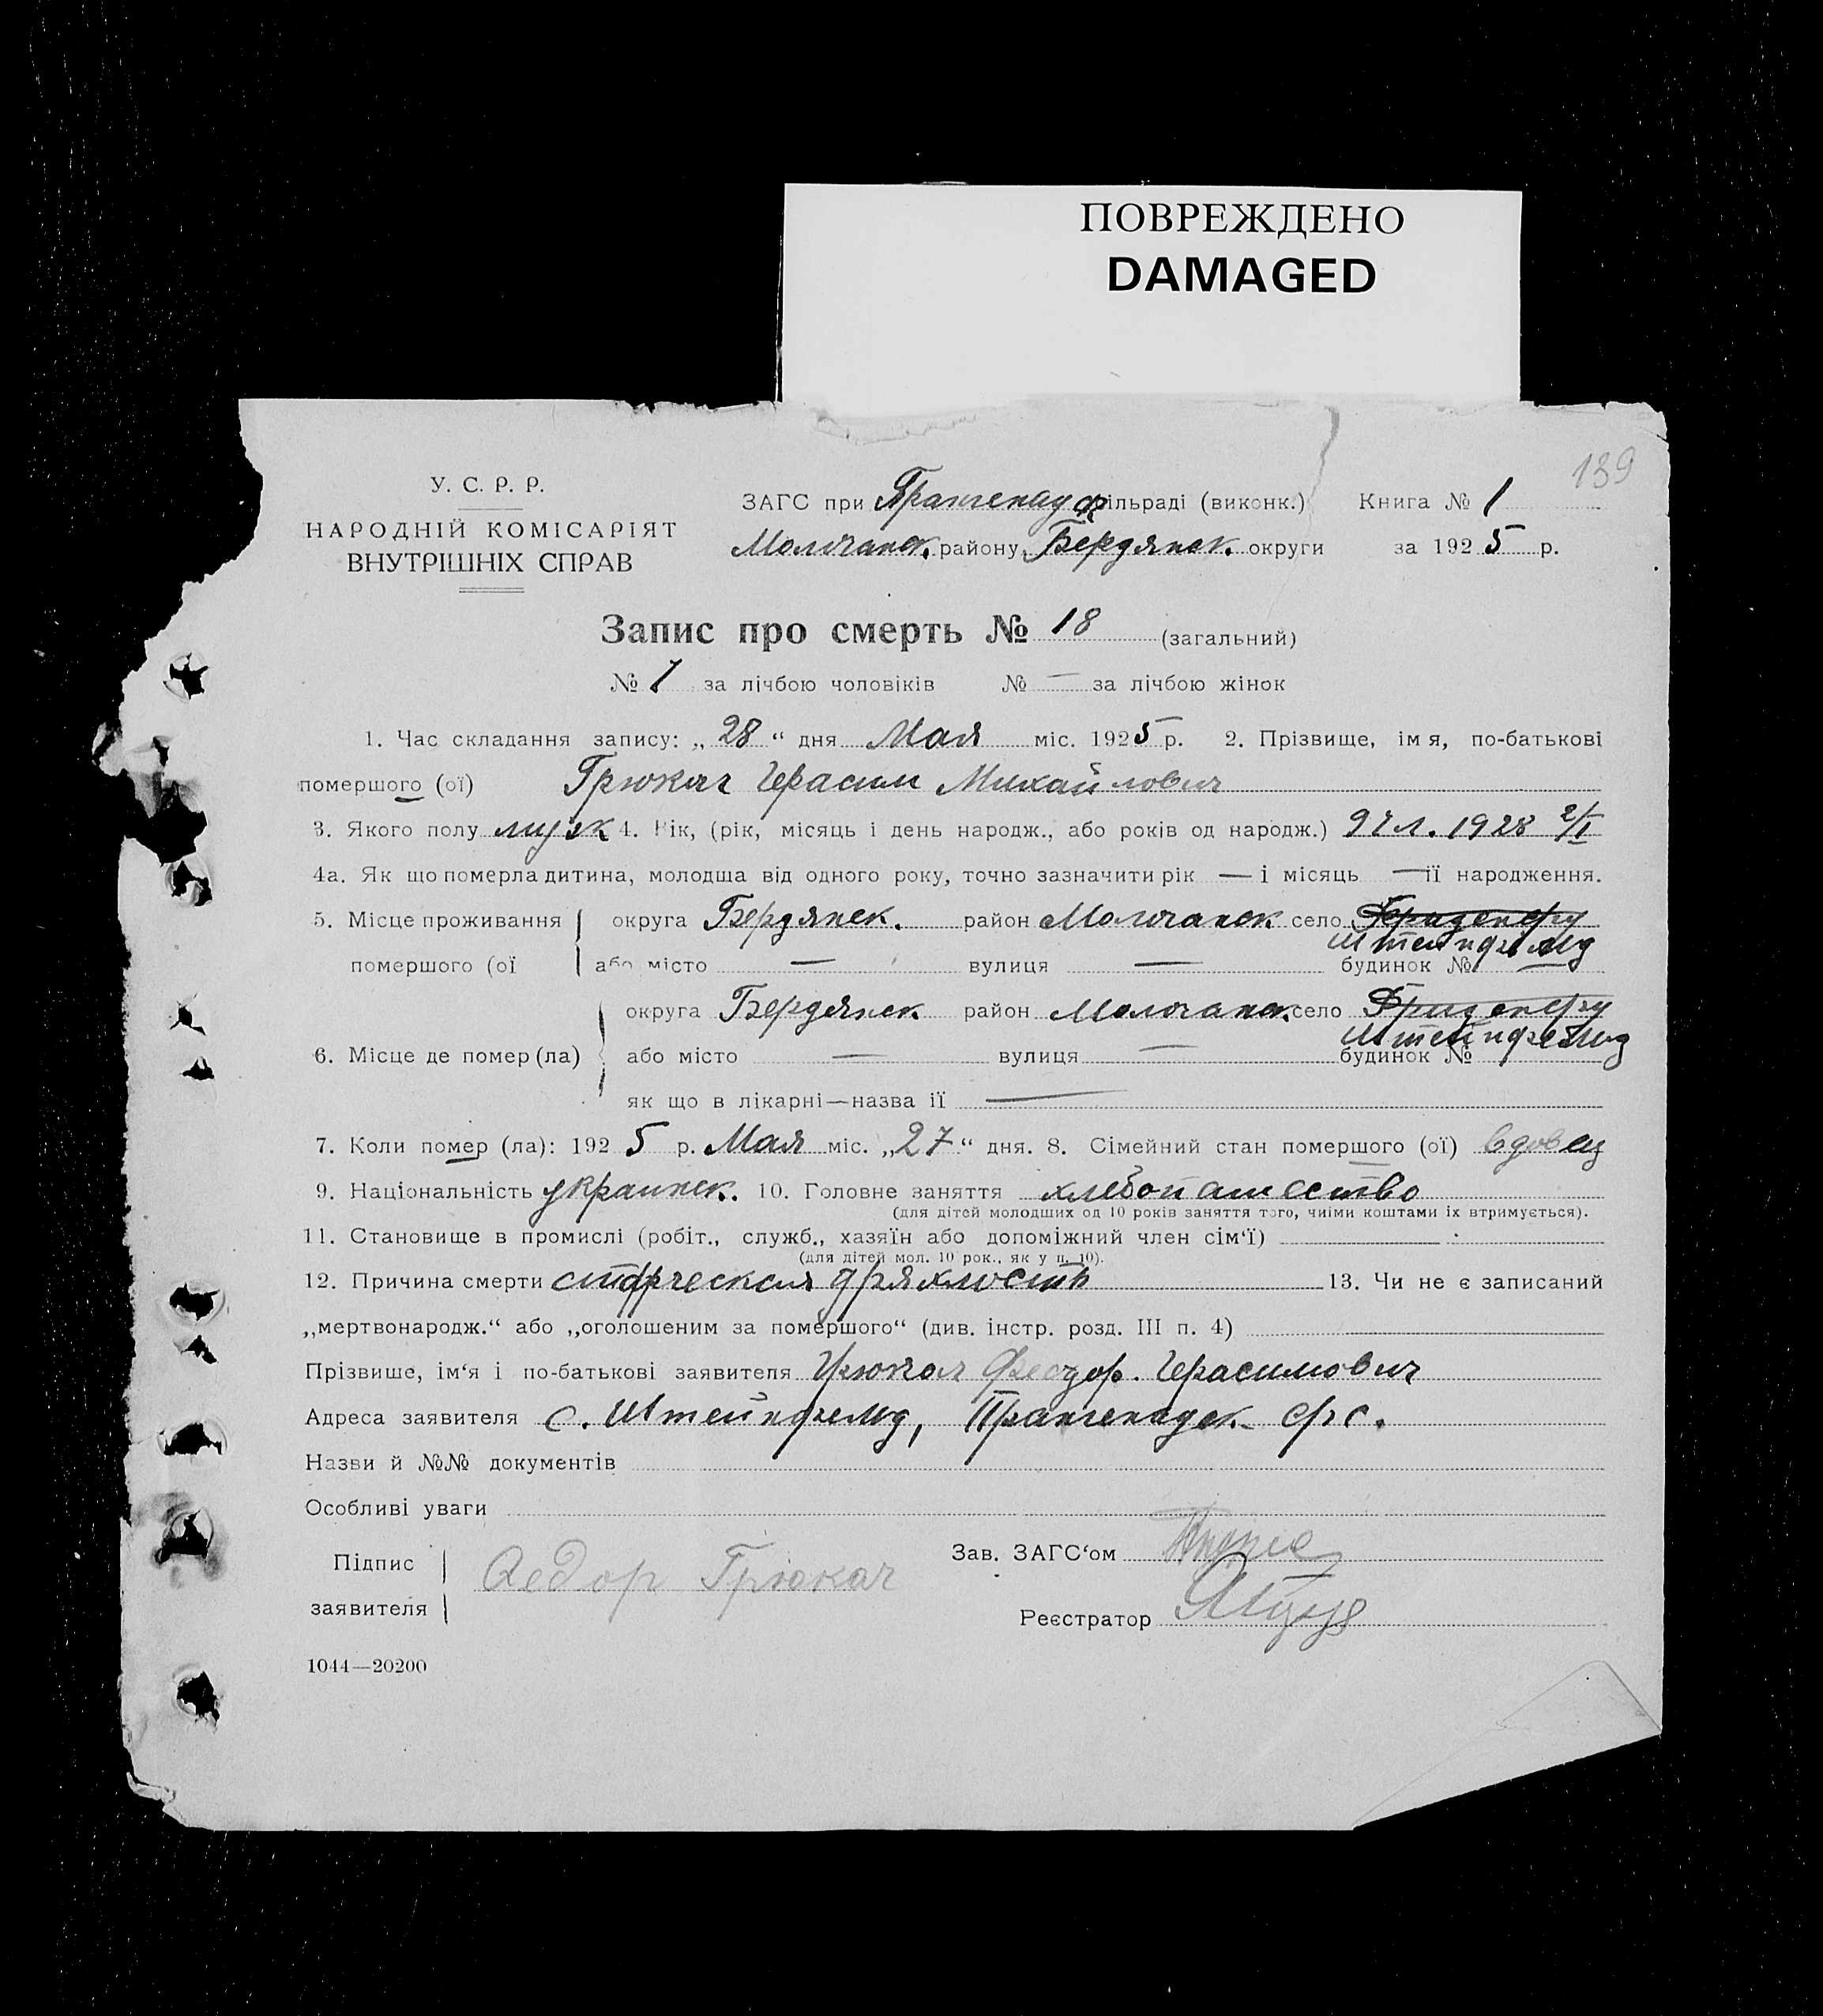 ПОВРЕЖДЕНО
DAMAGED
139
У. С. Р. Р.
НАРОДНІЙ КОМІСАРІЯТ
ВНУТРІШНІХ СПРАВ
ЗАГС при Пранgенауск сільраді (виконк.) Книга № 1
Молочанск. району, Бердянск. округи за 1925 р.
Запис про смерть № 18 (загальний)
№ 1 за лічбою чоловіків № — за лічбою жінок
1. Час складання запису: „28“ дня Мая міс. 1925 р. 2. Прізвище, імя, по-батькові
помершого (ої) Грюкач Герасим Михайлович
3. Якого полу муж 4. Рік, (рік, місяць і день народж., або років од народж.) 97 л. 1928 2/I
4а. Як що померла дитина, молодша від одного року, точно зазначити рік — і місяць — її народження.
5. Місце проживання округа Бердянск. район Молочанск село
Штейнфельд
помершого (ої або місто — вулиця — будинок № —
округа Бердянск район Молочанск. село
Штейнфельд
6. Місце де помер (ла) або місто — вулиця — будинок №
як що в лікарні—назва її —
7. Коли помер (ла): 1925 р. Мая міс. „27“ дня. 8. Сімейний стан помершого (ої) вдовец
9. Національність украинск. 10. Головне заняття хлебопашество
(для дітей молодших од 10 років заняття того, чиїми коштами їх втримується).
11. Становище в промислі (робіт., служб., хазяїн або допоміжний член сім‘ї) —
(для дітей мол. 10 рок., як у п. 10).
12. Причина смерти старческая дряхлость 13. Чи не є записаний
„мертвонародж.“ або „оголошеним за помершого“ (див. інстр. розд. III п. 4)
Прізвише, ім‘я і по-батькові заявителя Грюкач Феодор. Герасимович
Адреса заявителя с. Штейнфельд, Прангенауск. с/с.
Назви й №№ документів
Особливі уваги
Підпис Федор Грюкач
заявителя
Зав. ЗАГС‘ом
Реєстратор
1044—20200